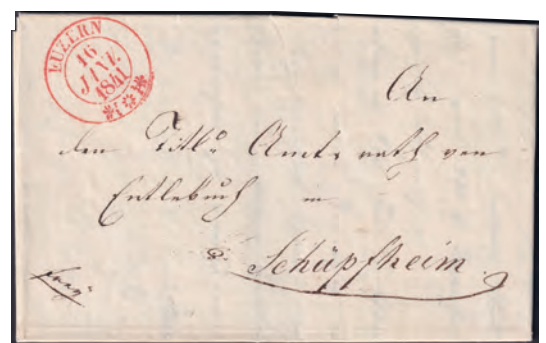 LUZERN
16
JANR.
1841
An
den Titl. Amtsrath von
Entlebuch in
Schüpfheim.
franco